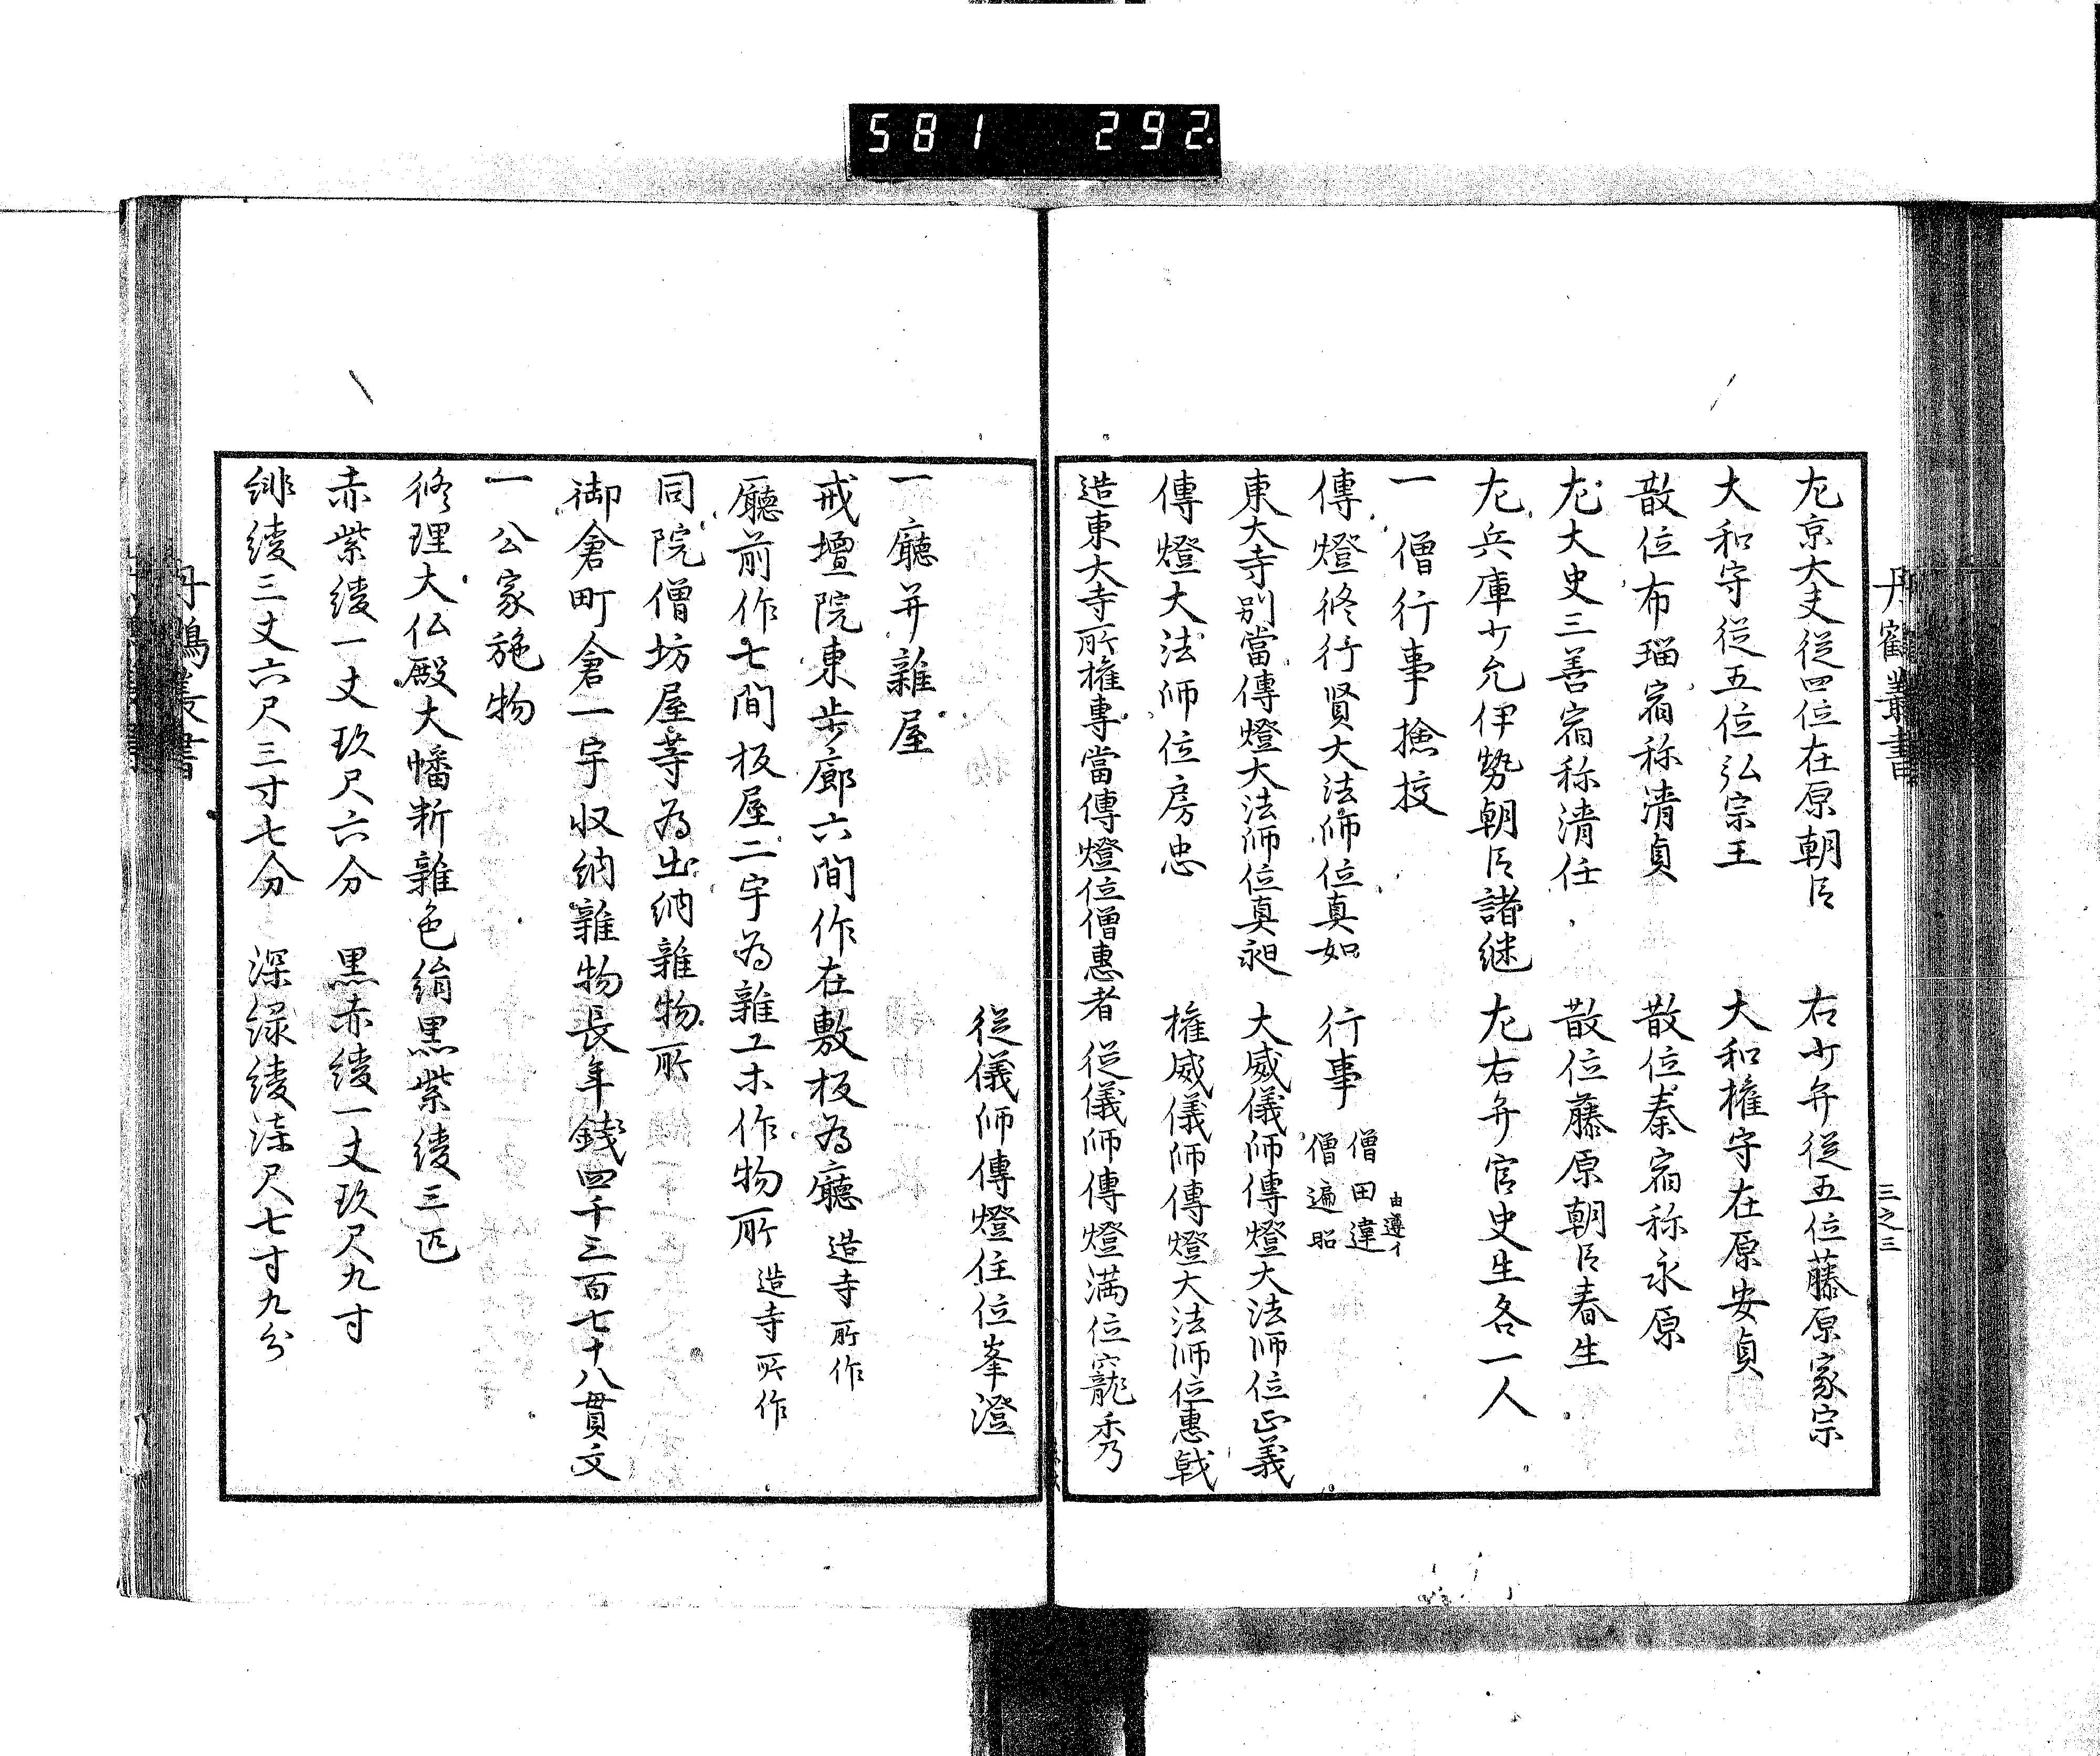 581 292.
丹鶴叢書
三之三
左京大夫従四位在原朝臣 右少弁従五位藤原家宗
大和守従五位弘宗王 大和権守在原安貞
散位布瑠宿祢清貞 散位秦宿祢永原
左大史三善宿祢清任 散位藤原朝臣春生
左兵庫少允伊勢朝臣諸継 左右弁官史生各一人
一 僧行事捡挍
傳燈修行賢大法師位真如 行事 僧田違 由遵イ 僧遍昭
東大寺別當傳燈大法師位真昶 大威儀師傳燈大法師位正義
傳燈大法師位房忠 権威儀師傳燈大法師位惠戟
造東大寺所権専當傳燈位僧惠者 従儀師傳燈満位寵秀
従儀師傳燈住位峯澄
一廳并雜屋
戒壇院東歩廊六間作在敷板為廳 造寺所作
廳前作七間板屋二宇為雜工木作物所 造寺所作
同院僧坊屋等為出納雜物所
御倉町倉一宇収納雜物長年銭四千三百七十八貫文
一公家施物
修理大仏殿大幡断雜色絹黒紫綾三疋
赤紫綾一丈玖尺六分 黒赤綾一丈玖尺九寸
緋綾三丈六尺三寸七分 深緑綾漆尺七寸九分
丹鶴叢書